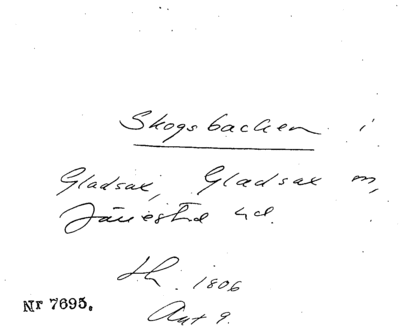 Skogsbacken i
Gladsax, Gladsax sn,
Järrestad hd.
Lh. 1806
Akt 9.
Nr 7695.